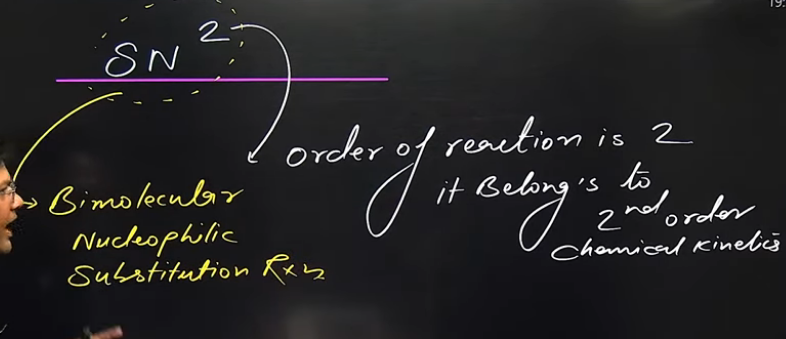 19:
SN2
order of reaction is 2
it Belong's to
2nd order
Chemical Kinetics
Bimolecular
Nucleophilic
Substitution Rxn